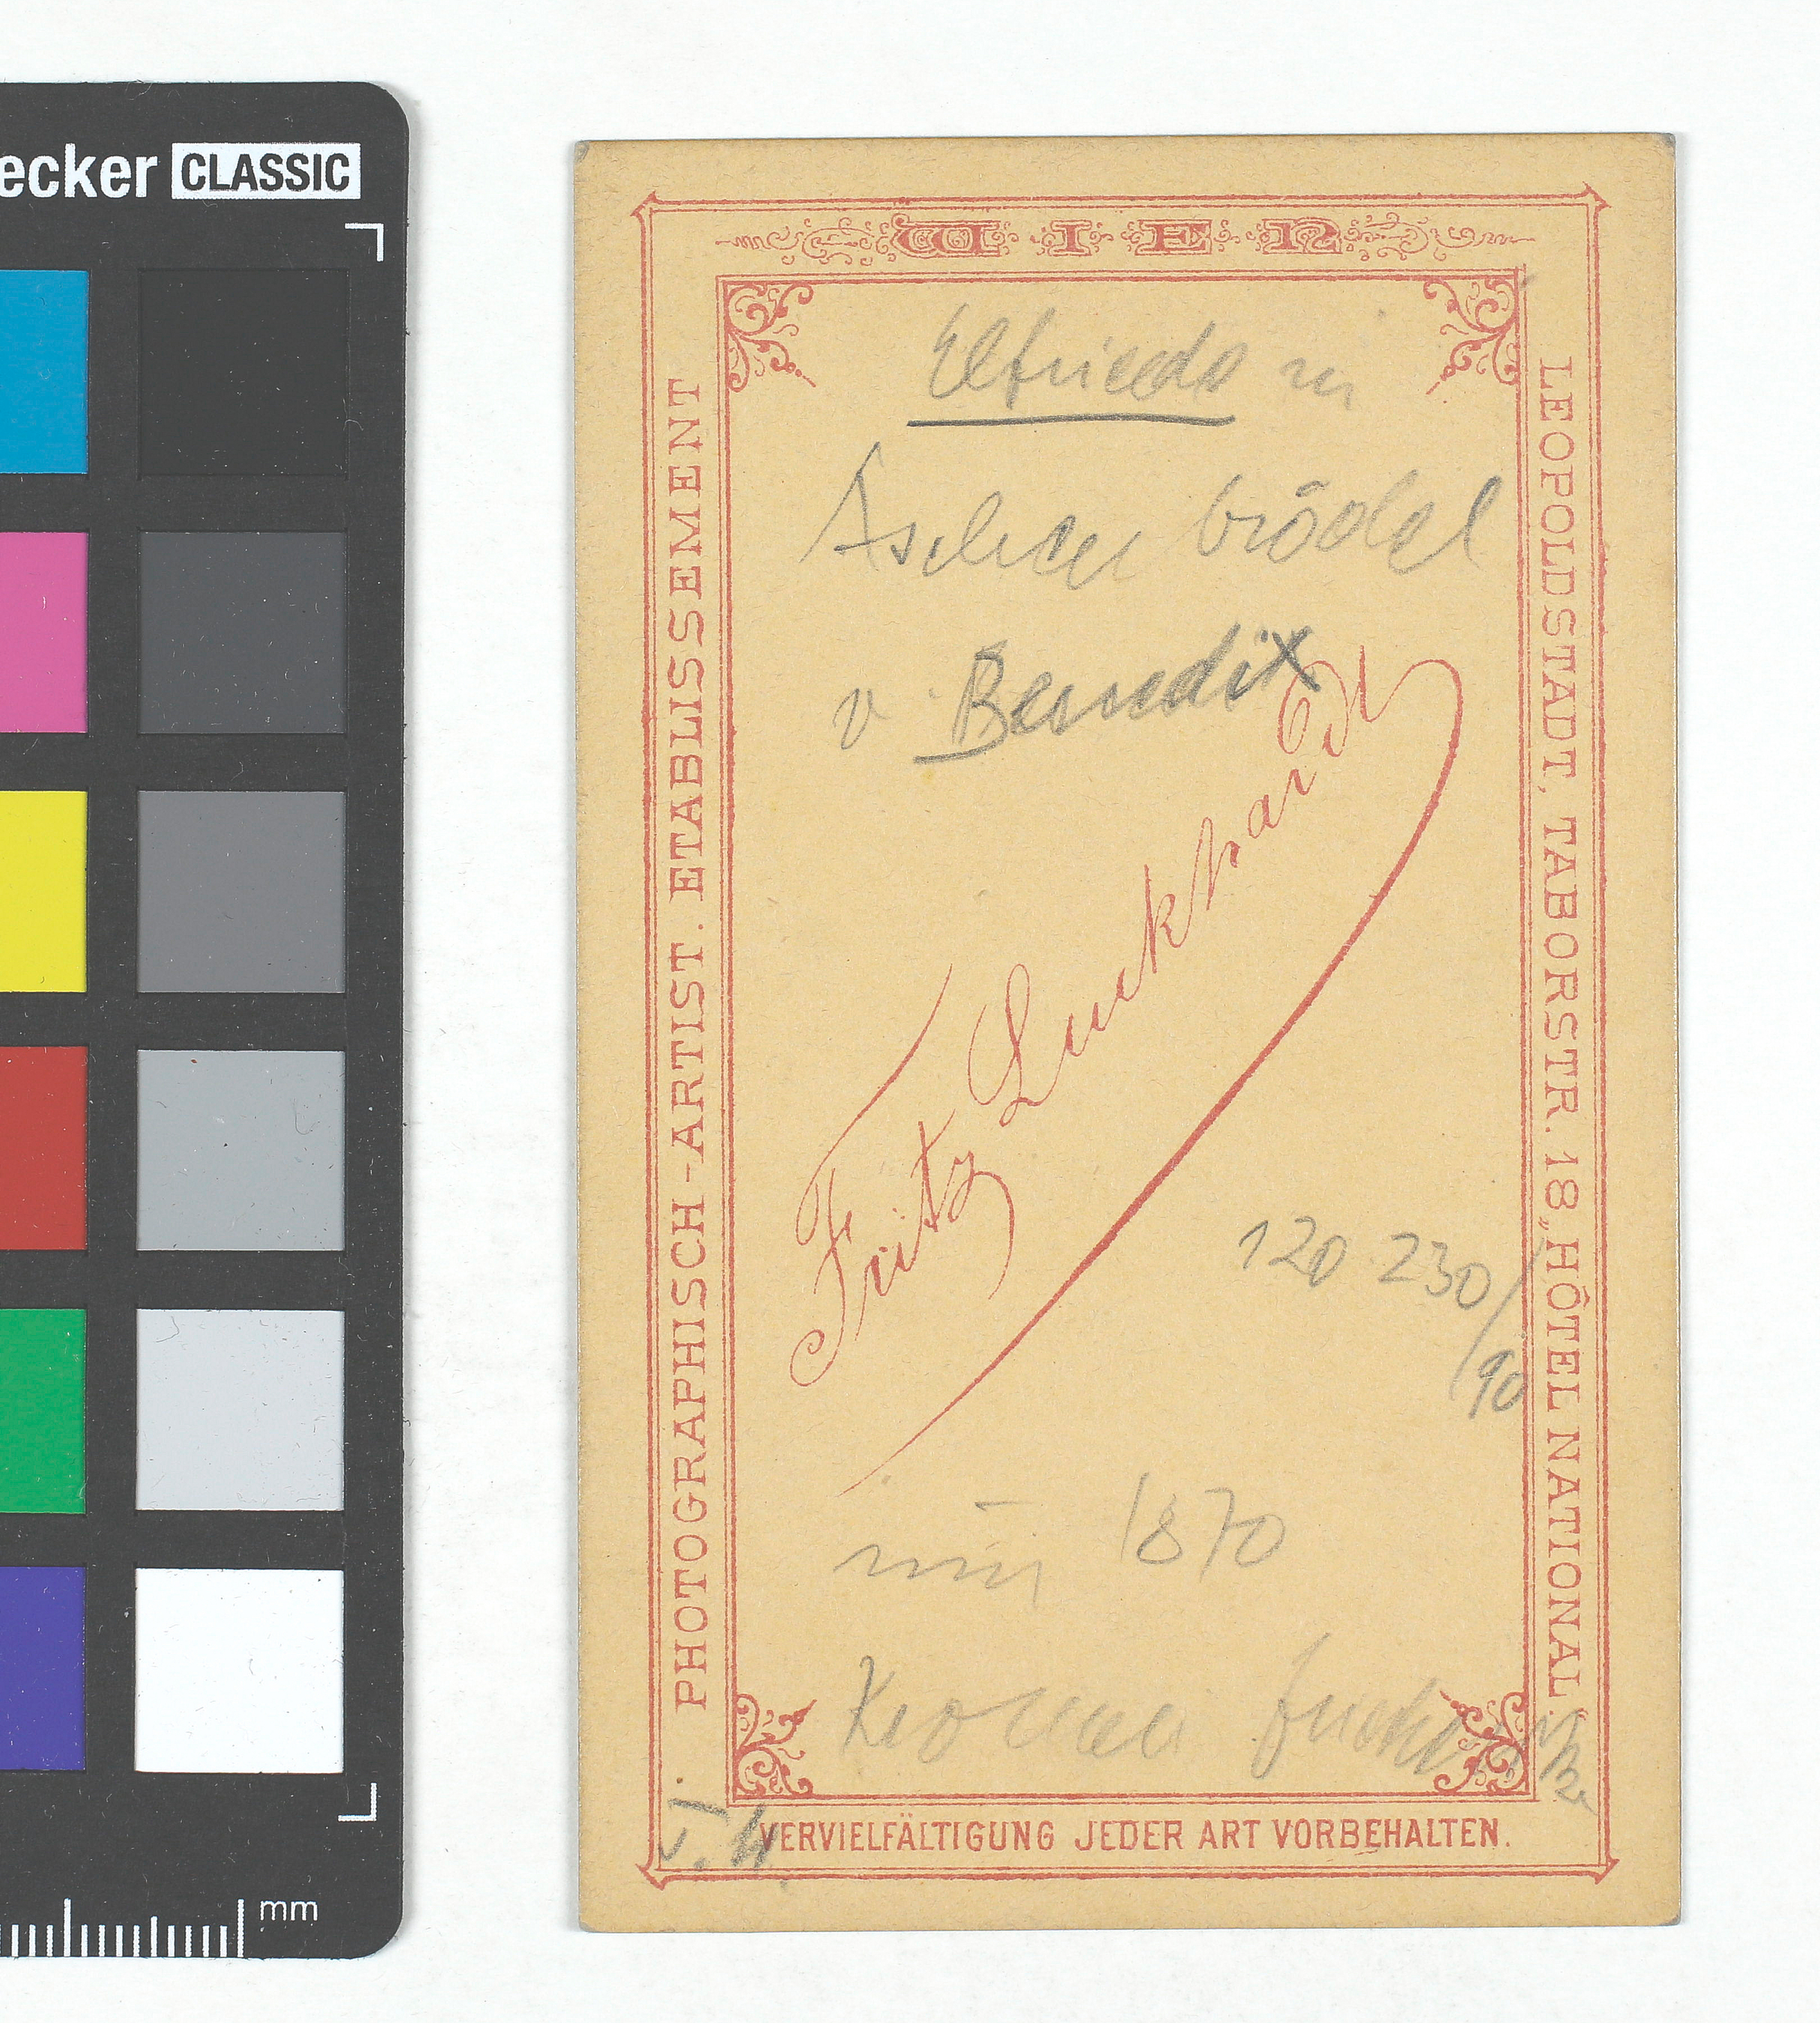 ecker CLASSIC
mm
WIEN
PHOTOGRAPHISCH-ARTIST. ETABLISSEMENT
LEOPOLDSTADT, TABORSTR. 18 „HÔTEL NATIONAL.“
Elfriede in
Aschenbrödel
v. Benedix
Fritz Luckhardt
120 230/
90
1870
VERVIELFÄLTIGUNG JEDER ART VORBEHALTEN.